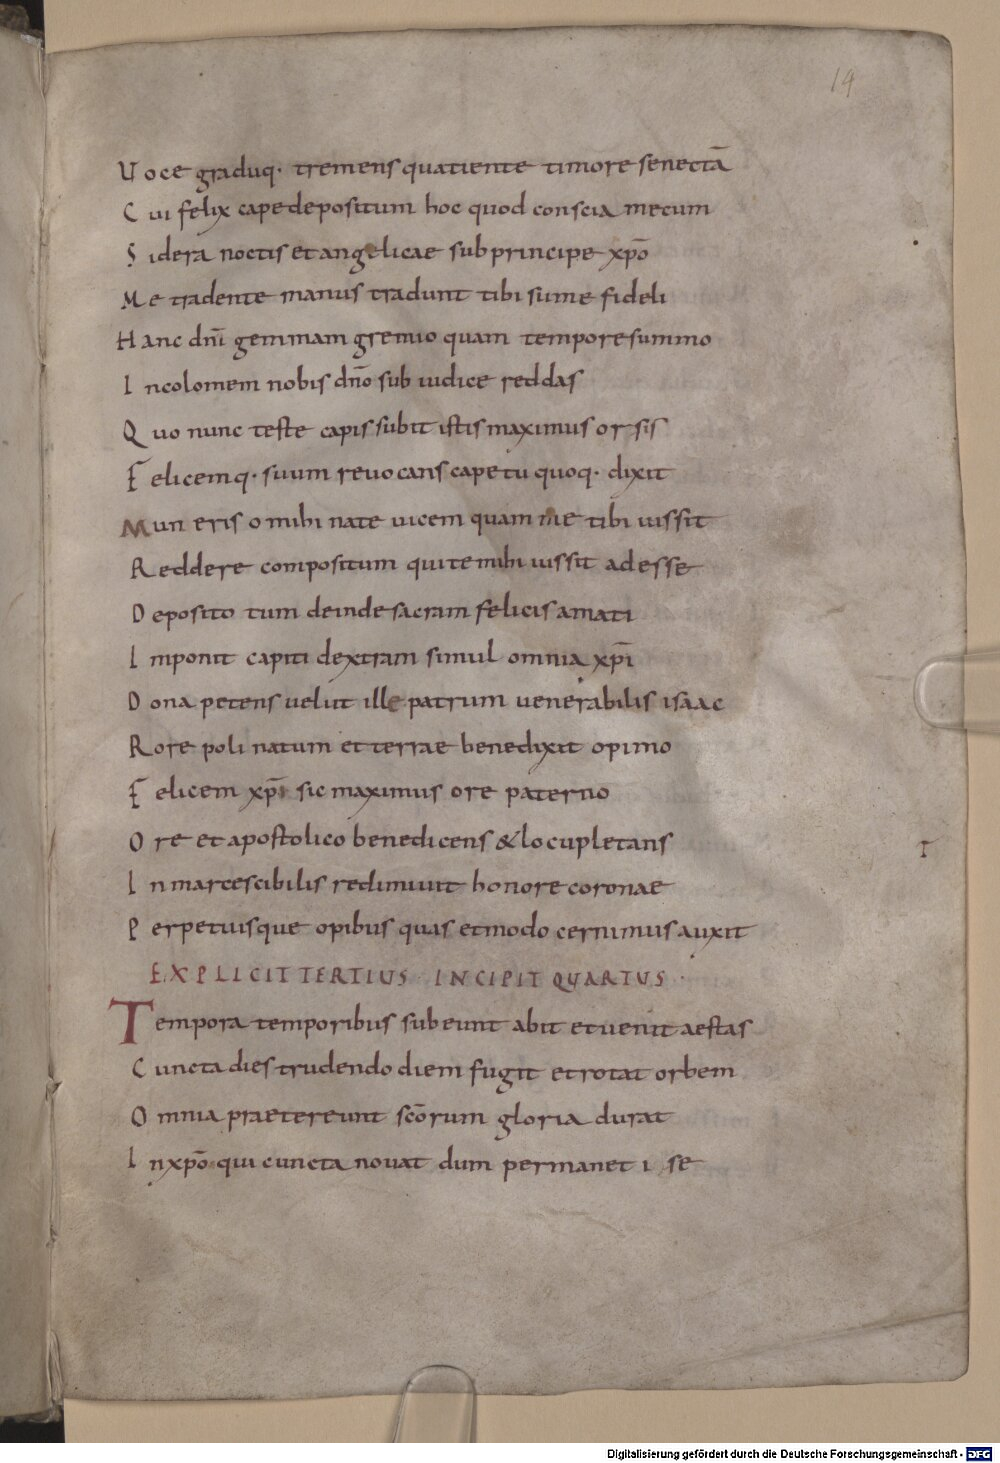 14
Uoce graduq· tremens quatiente timore senectā
Cui felix cape depositum hoc quod conscia mecum
Sidera noctis et angelicae sub principe xp̄o
Me tradente manus tradunt tibi sume fideli
Hanc dn̄i gemmam gremio quam tempore summo
Incolomem nobis dn̄o sub iudice reddas
Quo nunc teste capis subit istis maximus orsis
Felicemq· suum reuocans cape tu quoq· dixit
Muneris o mihi nate uicem quam me tibi iussit
Reddere compositum qui te mihi iussit adesse
Deposito tum deinde sacram felicis amati
Imponit capiti dextram simul omnia xp̄i
Dona petens uelut ille patrum uenerabilis isaac
Rore poli natum et terrae benedixit opimo
Felicem xp̄i sic maximus ore paterno
Ore et apostolico benedicens & locupletans
Inmarcescibilis redimiuit honore coronae
Perpetuisque opibus quas et modo cernimus auxit
EXPLICIT TERTIUS INCIPIT QUARTUS·
Tempora temporibus subeunt abit et uenit aestas
Cuncta dies trudendo diem fugit et rotat orbem
Omnia praetereunt sc̄orum gloria durat
In xp̄o qui cuncta nouat dum permanet i se
Digitalisierung gefördert durch die Deutsche Forschungsgemeinschaft - DFG